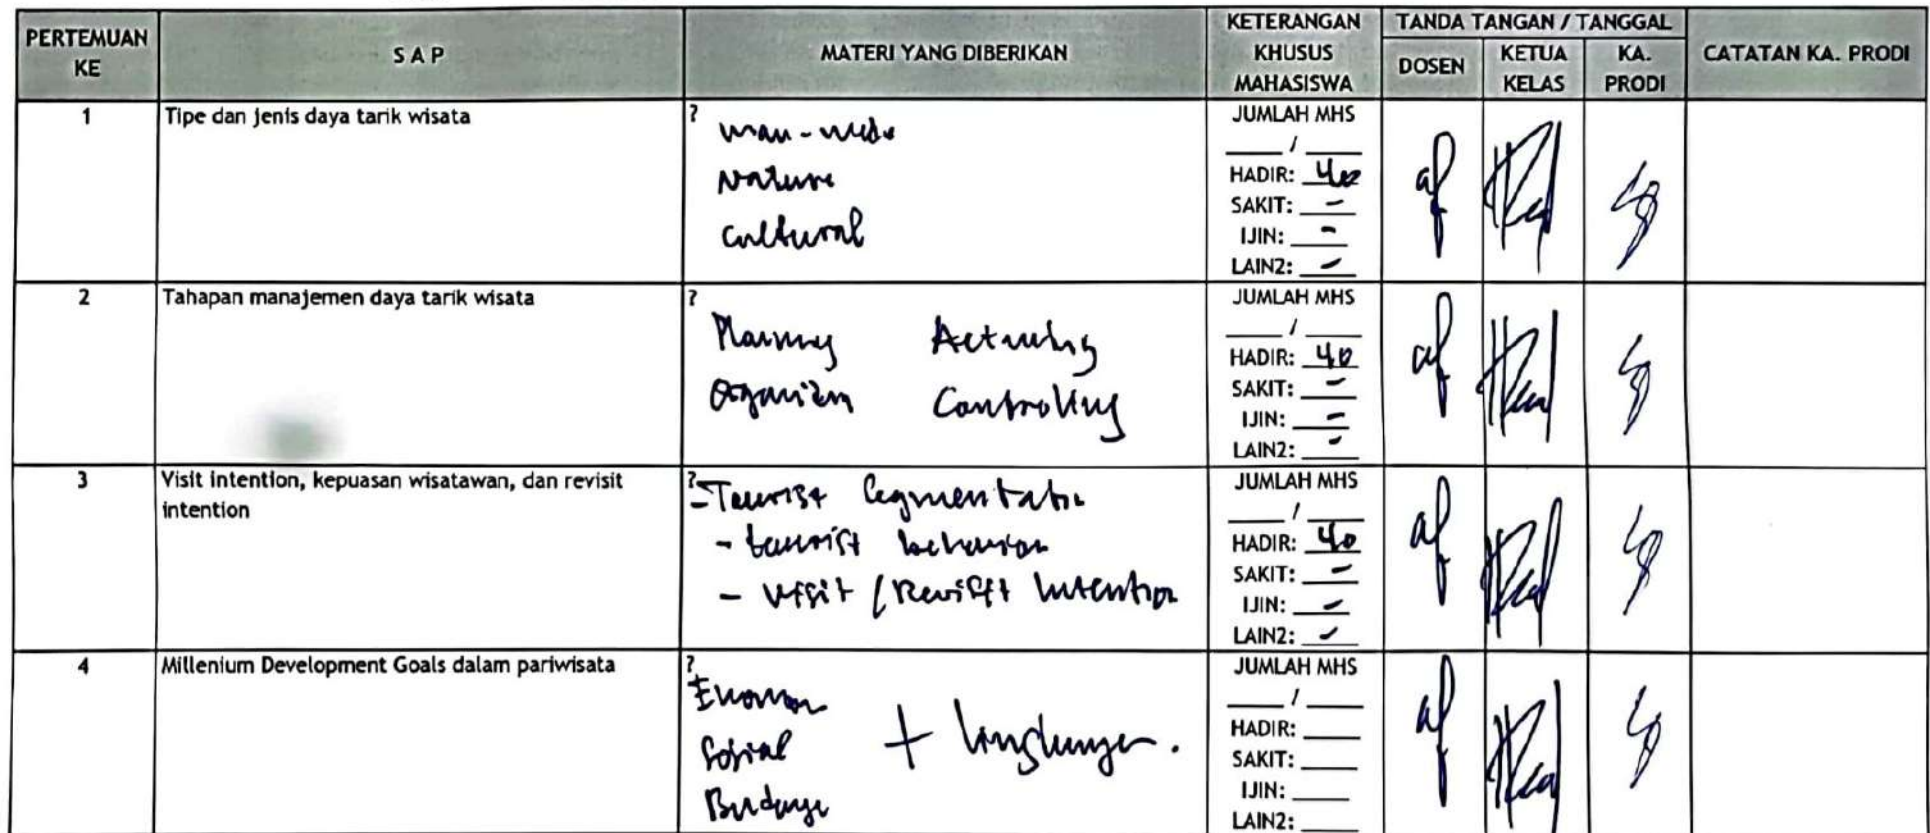 PERTEMUAN KE
S A P
MATERI YANG DIBERIKAN
KETERANGAN KHUSUS MAHASISWA
TANDA TANGAN / TANGGAL
DOSEN
KETUA KELAS
KA. PRODI
CATATAN KA. PRODI
1
Tipe dan jenis daya tarik wisata
?
man-made
Nature
Cultural
JUMLAH MHS
____ / ____
HADIR: 40
SAKIT: -
IJIN: -
LAIN2: -
2
Tahapan manajemen daya tarik wisata
?
Planning Actuating
Organizn Controling
JUMLAH MHS
____ / ____
HADIR: 40
SAKIT: -
IJIN: -
LAIN2: -
3
Visit intention, kepuasan wisatawan, dan revisit
intention
?
- Tourist Segmentatn
- tourist behavior
- Visit / Revisit Intention
JUMLAH MHS
____ / ____
HADIR: 40
SAKIT: -
IJIN: -
LAIN2: -
4
Millenium Development Goals dalam pariwisata
?
Ekonom
Sosial + lingkungan.
Budaya
JUMLAH MHS
____ / ____
HADIR: ____
SAKIT: ____
IJIN: ____
LAIN2: ____